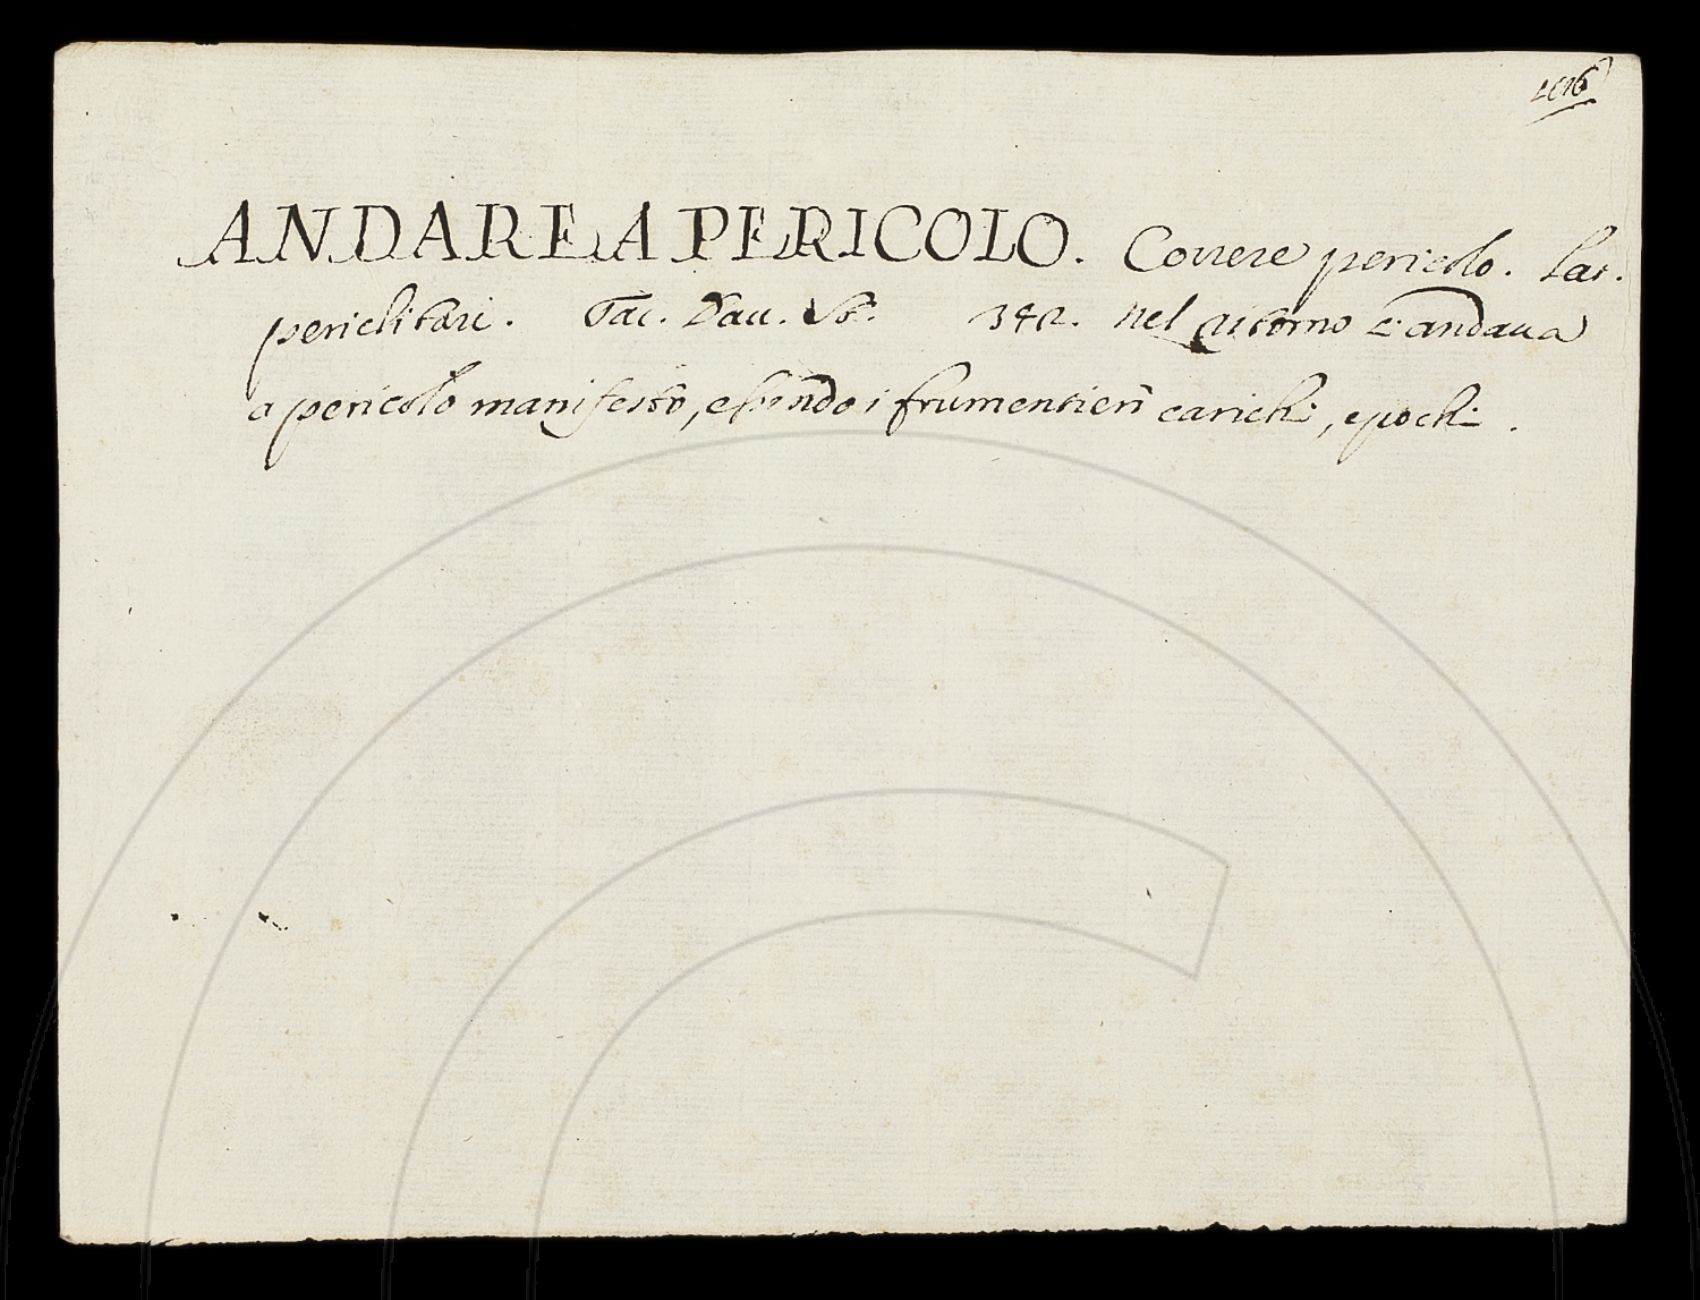 ANDARE A PERICOLO. Correre pericolo. Lat.
periclitari. Tac. Dau. St. 342. Nel ritorno s'andaua
a pericolo manifesto, essendo i frumentieri carichi, e pochi.